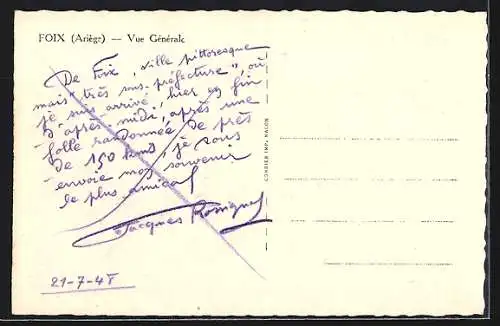 FOIX (Ariège) — Vue Générale
De Foix, ville pittoresque
mais "très sous-préfecture", où
je suis arrivé hier en fin
d'après-midi, après une
folle randonnée de près
de 150 kms, je vous
envoie mon souvenir
le plus amical
Jacques
21-7-4
COMBIER IMP. MACON